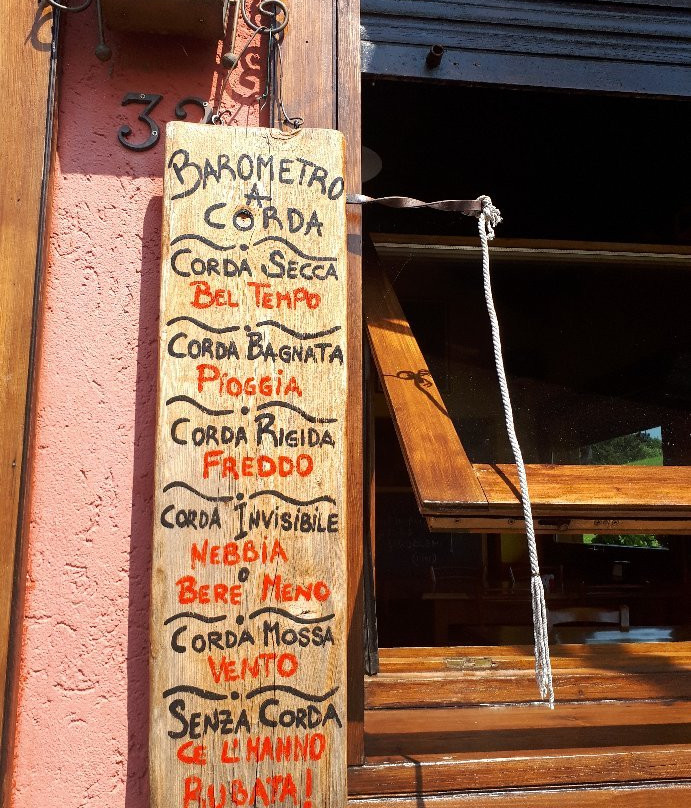 32
BAROMETRO
A
CORDA
CORDA SECCA
BEL TEMPO
CORDA BAGNATA
PIOGGIA
CORDA RIGIDA
FREDDO
CORDA INVISIBILE
NEBBIA
O
BERE MENO
CORDA MOSSA
VENTO
SENZA CORDA
CE L'HANNO
RUBATA!